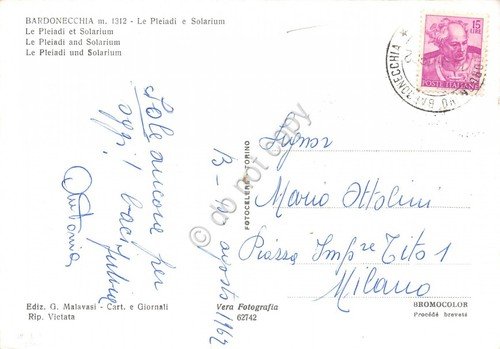 BARDONECCHIA m. 1312 - Le Pleiadi e Solarium
Le Pleiadi et Solarium
Le Pleiadi and Solarium
Le Pleiadi und Solarium
Sole ancora per
oggi! baci
Antonia
B - agosto 1962
FOTOCELERE - TORINO
15
LIRE
POSTE ITALIANE
BARDONECCHIA
Signor
Mario Ottolini
Piazza Imp.re Tito 1
Milano
© do not copy
Ediz. G. Malavasi - Cart. e Giornali
Rip. Vietata
Vera Fotografia
62742
BROMOCOLOR
Procédé breveté